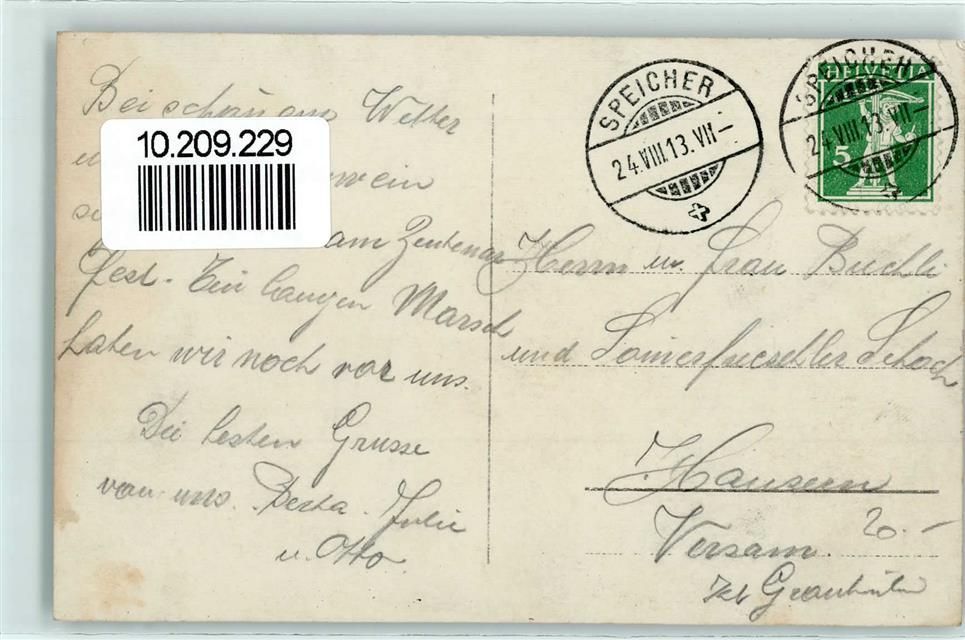 Bei schönem Wetter
10.209.229
am Zentenar
fest. Ein langen Marsch
haben wir noch vor uns.
Die besten Grüsse
von uns. Berta. Julie
u. Otto.
SPEICHER
24.VIII.13.VII-
SPEICHER
24.VIII.13.VII-
HELVETIA
5
Herrn u. Frau Buchli
und
Versam.
20.-
Kt Graubünden